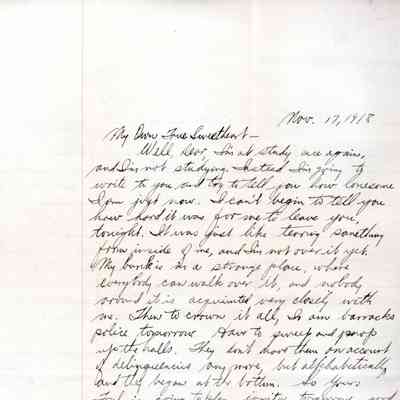 Nov. 17, 1918
My Own True Sweetheart—
Well, Dear, I'm at study once again,
and I'm not studying. Instead I'm going to
write to you and try to tell you how lonesome
I am just now. I can't begin to tell you
how hard it was for me to leave you
tonight. It was just like tearing something
from inside of me, and I'm not over it yet.
My bunk is in a strange place, where
everybody can walk over it, and nobody
around it is acquainted very closely with
me. Then to crown it all, I am barracks
police tomorrow. Have to sweep and mop
up the halls. They don't have them on account
of delinquencies any more, but alphabetically
and they began at the bottom. So Yours